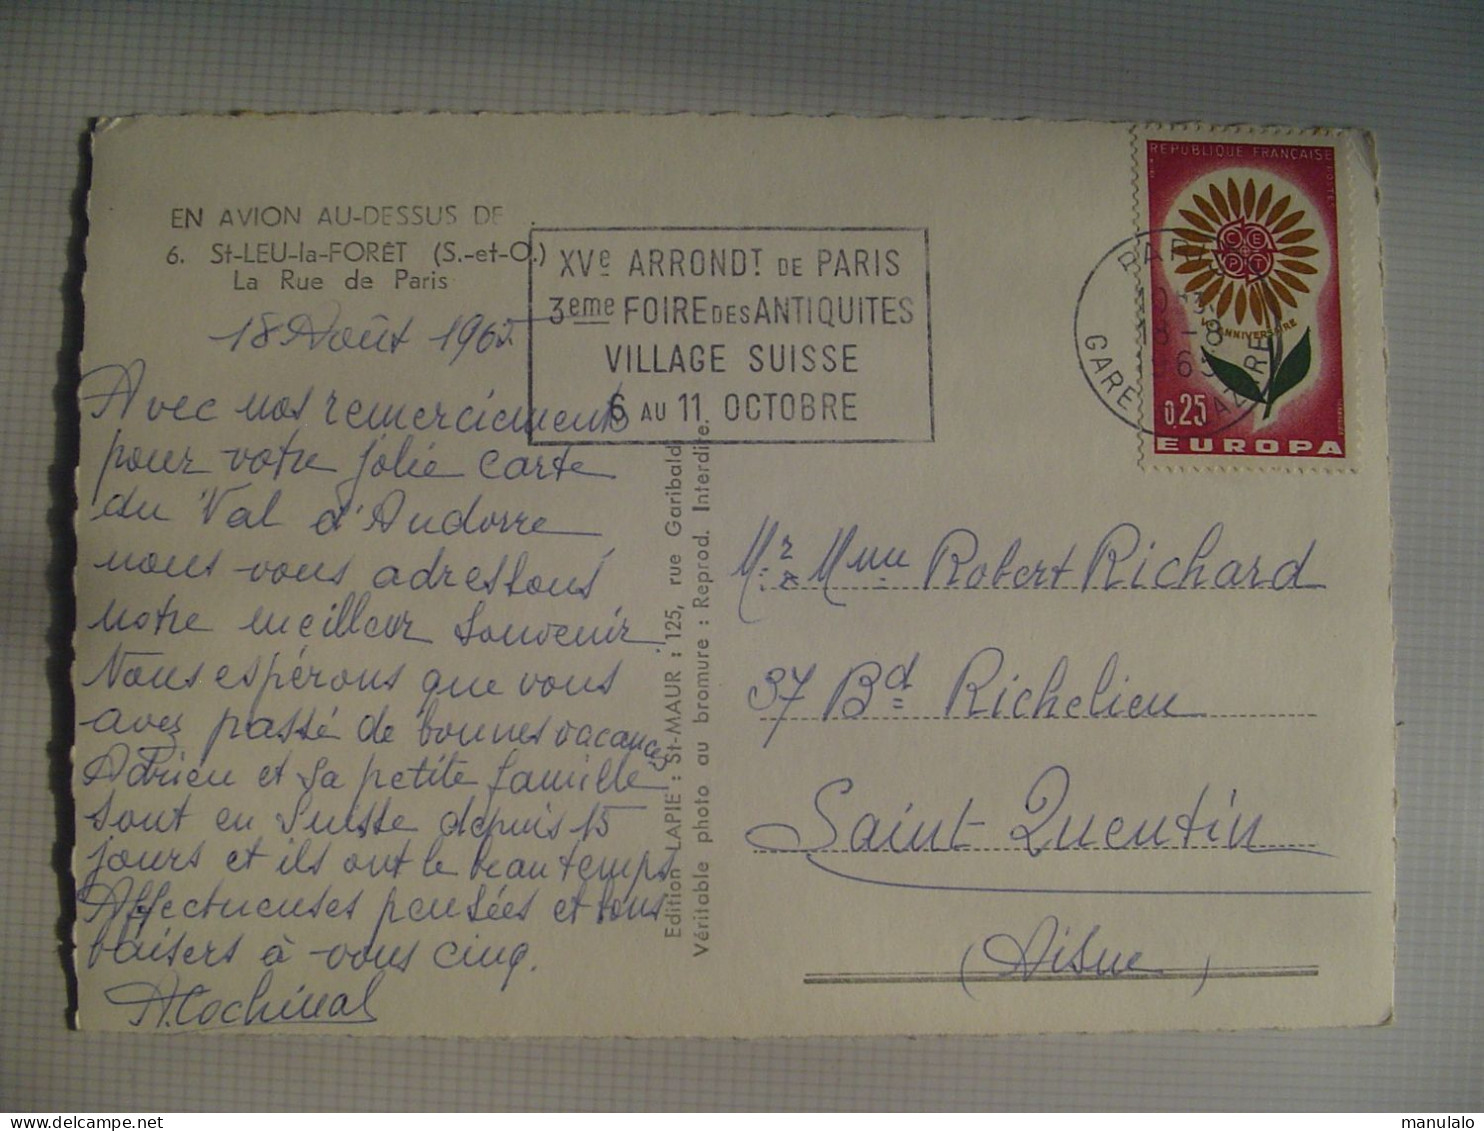 EN AVION AU-DESSUS DE
6. St-LEU-la-FORÊT (S.-et-O.)
La Rue de Paris
18 Août 1965
Avec nos remerciements
pour votre jolie carte
du Val d'Andorre
nous vous adressons
notre meilleur souvenir
Nous espérons que vous
avez passé de bonnes vacances
Adrien et sa petite famille
sont en Suisse depuis 15
jours et ils ont le beau temps
Affectueuses pensées et bons
baisers à vous cinq.
A. Cochinal
XVe ARRONDT DE PARIS
3eme FOIRE DES ANTIQUITES
VILLAGE SUISSE
6 AU 11 OCTOBRE
Edition LAPIE : St-MAUR : 125, rue Garibaldi
Véritable photo au bromure : Reprod. Interdite.
REPUBLIQUE FRANÇAISE POSTES
CEPT
Ve ANNIVERSAIRE
0,25
EUROPA
PARIS
18 - 8
1965
GARE ST LAZARE
Mr & Mme Robert Richard
37 Bd Richelieu
Saint Quentin
(Aisne)
manulalo